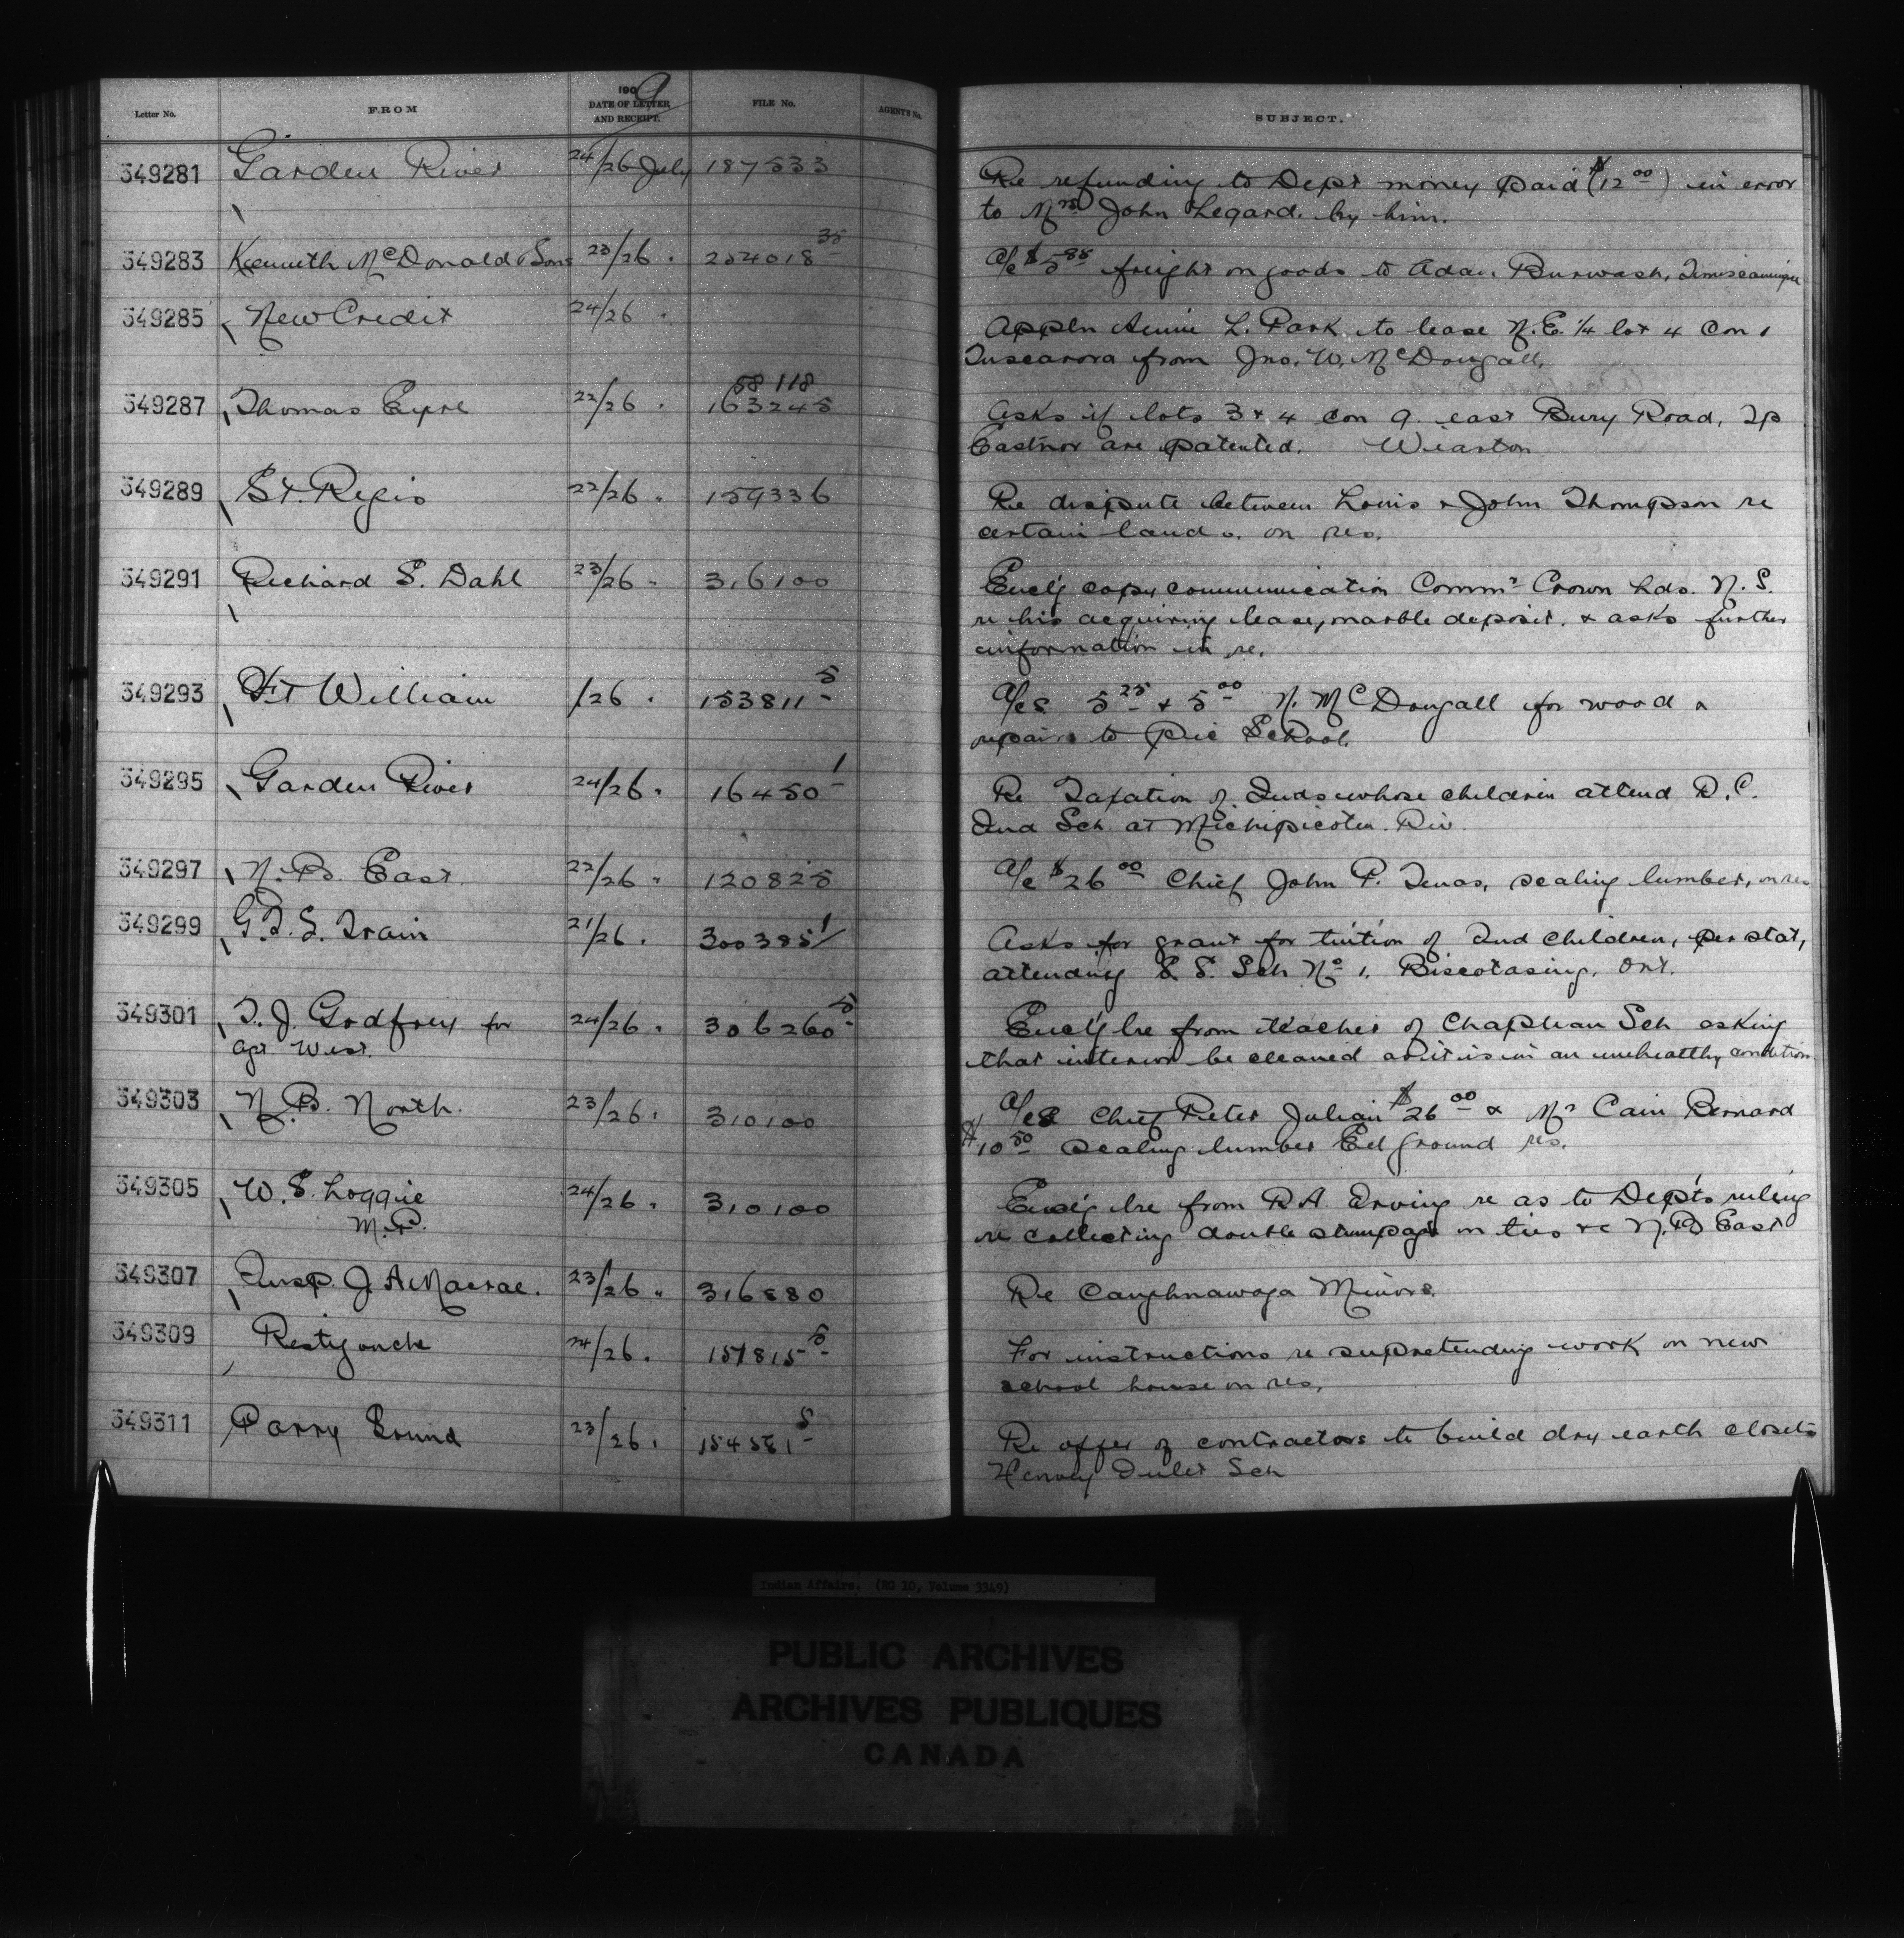 Letter No. FROM 1909 DATE OF LETTER AND RECEIPT. FILE No. AGENT'S No. SUBJECT.
349281 Garden River 24/26 July 187533 Re refunding to Dept money paid ($12 00) in error
to Mrs John Legard. by him.
349283 Kenneth McDonald & Sons 23/26 " 254018 35 a/c $5 88 freight on goods to Adam Burwash, Timiscamingue
349285 New Credit 24/26 " Appln Annie L. Park to lease N.E. 1/4 lot 4 Con 1
Tuscarora from Jno. W. McDougall.
349287 Thomas Eyre 22/26 " 58118 163245 Asks if lots 3 & 4 con 9. east Bury Road, Tp
Eastnor are patented. Wiarton
349289 St. Regis 22/26 " 159336 Re dispute between Louis & John Thompson re
certain lands. on res.
349291 Richard S. Dahl 23/26 " 316100 Encl'g copy communication Commr Crown Lds. N.S.
re his acquiring lease, marble deposit. & asks further
information in re.
349293 Ft William /26 " 153811 5 a/cs 5 25 & 5 00 N. McDougall for wood &
repairs to Pic School.
349295 Garden River 24/26 " 16450 1 Re Taxation of Inds whose children attend R.C.
Ind Sch. at Michipicoten Riv.
349297 N.B. East 22/26 " 120825 a/c $26 00 Chief John P. Tenas, scaling lumber, on res
349299 G.T.S. Train 21/26 " 300385 1 Asks for grant for tuition of Ind children, per stat,
attending S.S. Sch No 1, Biscotasing, Ont.
349301 T. J. Godfrey for 24/26 " 306260 5 Encl'g lre from teacher of Chapleau Sch asking
agt West. that interior be cleaned as it is in an unhealthy condition
349303 N.B. North. 23/26 " 310100 a/cs Chief Peter Julian $26 00 & Mr Cain Bernard
$10 50 scaling lumber Eel Ground res.
349305 W. S. Loggie 24/26 " 310100 Encl'g lre from R.A. Irving re as to Dept's ruling
M.P. re collecting double stumpage on ties &c N.B East
349307 Insp. J. A Macrae. 23/26 " 316880 Re Caughnawaga Minors.
349309 Restigouche 24/26 " 157815 5 For instructions re supretending work on new
school house on res.
349311 Parry Sound 23/26 " 154581 5 Re offer of contractors to build dry earth closets
Henvey Inlet Sch
Indian Affairs. (RG 10, Volume 3349)
PUBLIC ARCHIVES
ARCHIVES PUBLIQUES
CANADA